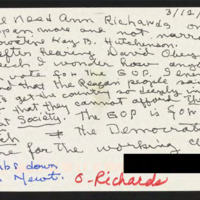 e Need Ann Richards on
3/12/
open mode and not narr
Kay B. Hutchinson
after hearing David Obey
I wonder how any
vote for the GOP. I
and that the Reagan people sa
get the country so deeply in
so that they cannot afford the
Society". The GOP is for
the Democrat
me for the working cl
down
Newt.
O-Richards